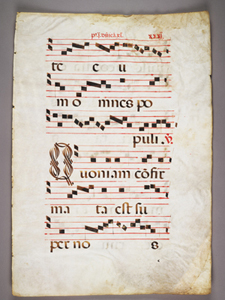 te e u
mo mnes po
puli. V.
Quoniam cōfir
ma ta est su
per no s